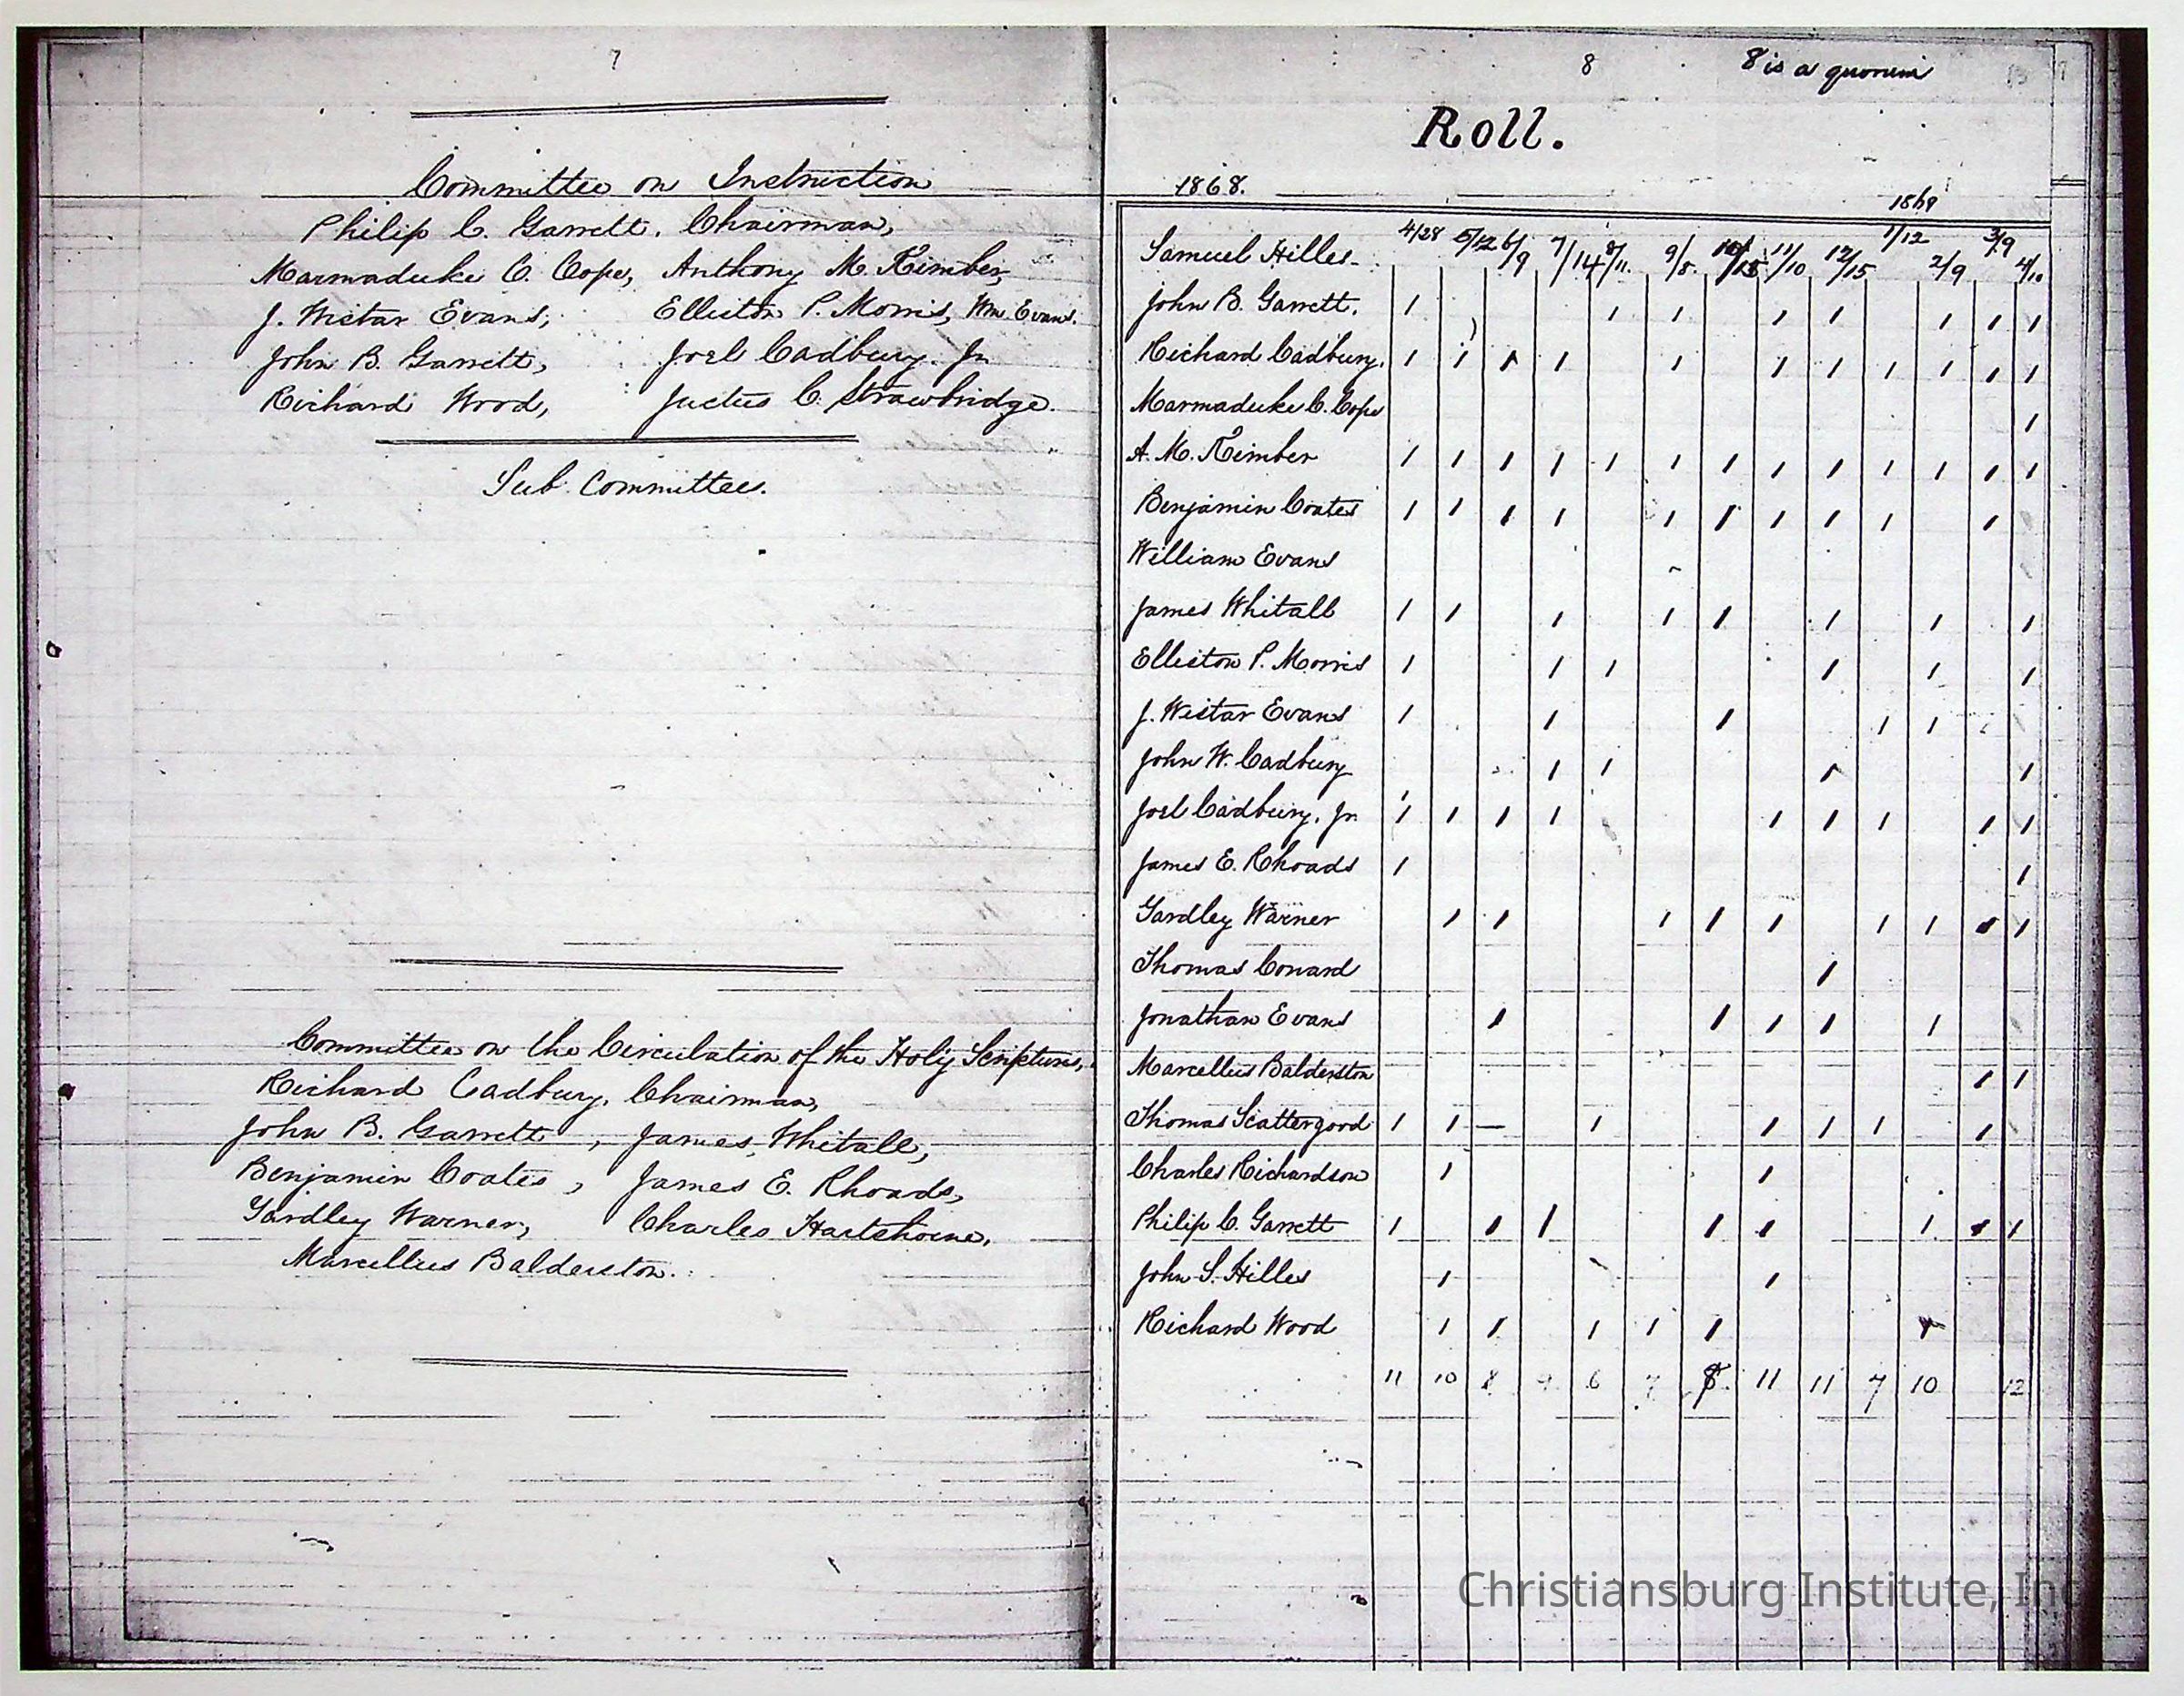 7
Committee on Instruction
Philip C. Garrett, Chairman,
Marmaduke C. Cope, Anthony M. Kimber,
J. Wistar Evans, Elliston P. Morris, Wm. Evans.
John B. Garrett, Joel Cadbury, Jr.
Richard Wood, Justus C. Strawbridge.
Sub Committees.
Committee on the Circulation of the Holy Scriptures,
Richard Cadbury, Chairman,
John B. Garrett, James Whitall,
Benjamin Coates, James E. Rhoads,
Yardley Warner, Charles Hartshorne,
Marcellus Balderston.
8 8 is a quorum
Roll.
1868. 1869
Samuel Hilles 4/28 5/12 6/9 7/14 8/11. 9/8. 11/10 12/15 1/12 2/9 3/9 4/10
John B. Garrett. 1 1 1 1 1 1 1 1
Richard Cadbury. 1 1 1 1 1 1 1 1 1 1 1
Marmaduke C. Cope 1
A. M. Kimber 1 1 1 1 1 1 1 1 1 1 1 1 1
Benjamin Coates 1 1 1 1 1 1 1 1 1 1
William Evans
James Whitall 1 1 1 1 1 1 1 1
Elliston P. Morris 1 1 1 1 1 1
J. Wistar Evans 1 1 1 1 1
John W. Cadbury 1 1 1 1
Joel Cadbury, Jr. 1 1 1 1 1 1 1 1 1
James E. Rhoads 1 1
Yardley Warner 1 1 1 1 1 1 1 1 1
Thomas Conard 1
Jonathan Evans 1 1 1 1 1
Marcellus Balderston 1 1
Thomas Scattergood 1 1 — 1 1 1 1 1
Charles Richardson 1 1
Philip C. Garrett 1 1 1 1 1 1 1 1
John S. Hilles 1 1
Richard Wood 1 1 1 1 1 1
11 10 8 9 6 7 8 11 11 7 10 12
Christiansburg Institute, Inc